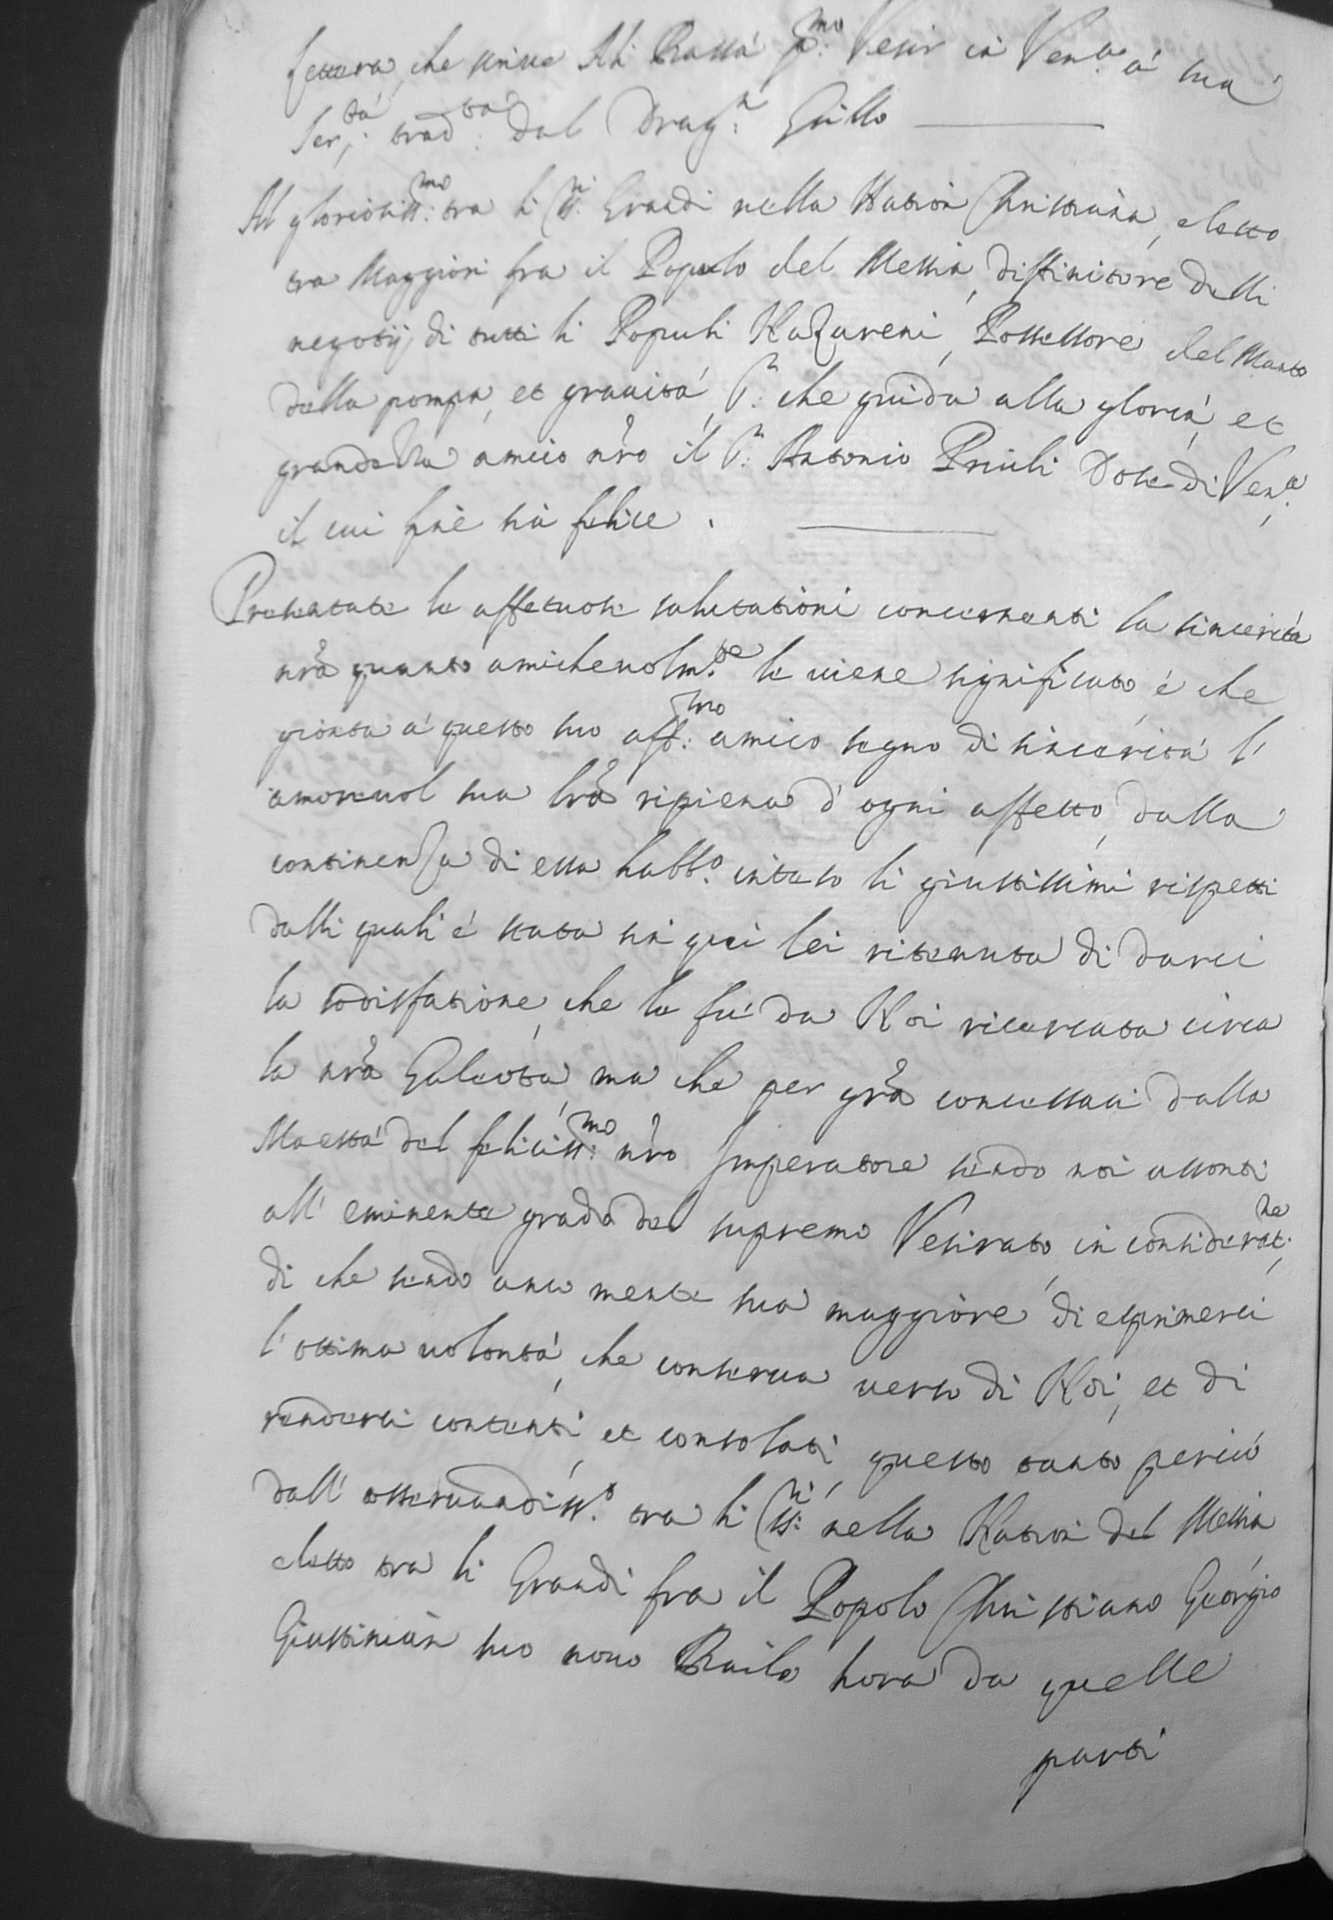 lettera, che scriue Alì Bassà p.mo Vesir in Ven.a à sua
Ser.tà trad.ta dal Drag.n Grillo
Al gloriosiss.mo tra li SS.ri Grandi nella Nation Christiana, eletto
tra Maggiori fra il Populo del Messia, diffinitore delli
negotij di tutti li Populi Nazareni, Possessore del Manto
della pompa, et grauità, S.r che guida alla gloria, et
grandezza amico nr̃o il S.r Antonio Priuli Dose di Ven.a
il cui fine sia felice.
Presentate le affetuose salutationi concernenti la sincerità
nr̃a quanto amicheuolm.te le uiene significato è che
gionta à questo suo aff.mo amico segno di sincerità l'
amoreuol sua lr̃a ripiena d'ogni affetto, dalla
continenza di essa habb.o inteso li giustissimi rispetti
dalli quali è stata sin qui lei ritenuta di darci
la sodisfatione, che le fù da Noi ricercata circa
la nr̃a Galeota, ma che per gr̃a concessaci dalla
Maestà del feliciss.mo nr̃o Imperatore sendo noi assonti
all'eminente grado del supremo Vesirato, in considerat.ne
di che sendo anco mente sua maggiore di esprimerci
l'ottima uolontà, che conserua uerso di Noi, et di
renderci contenti, et consolati, questo tanto perciò
dall'osseruandiss.o tra li SS.ri nella Nation del Messia
eletto tra li Grandi fra il Popolo Christiano Giorgio
Giustinian suo nouo Bailo hora da quelle
parti